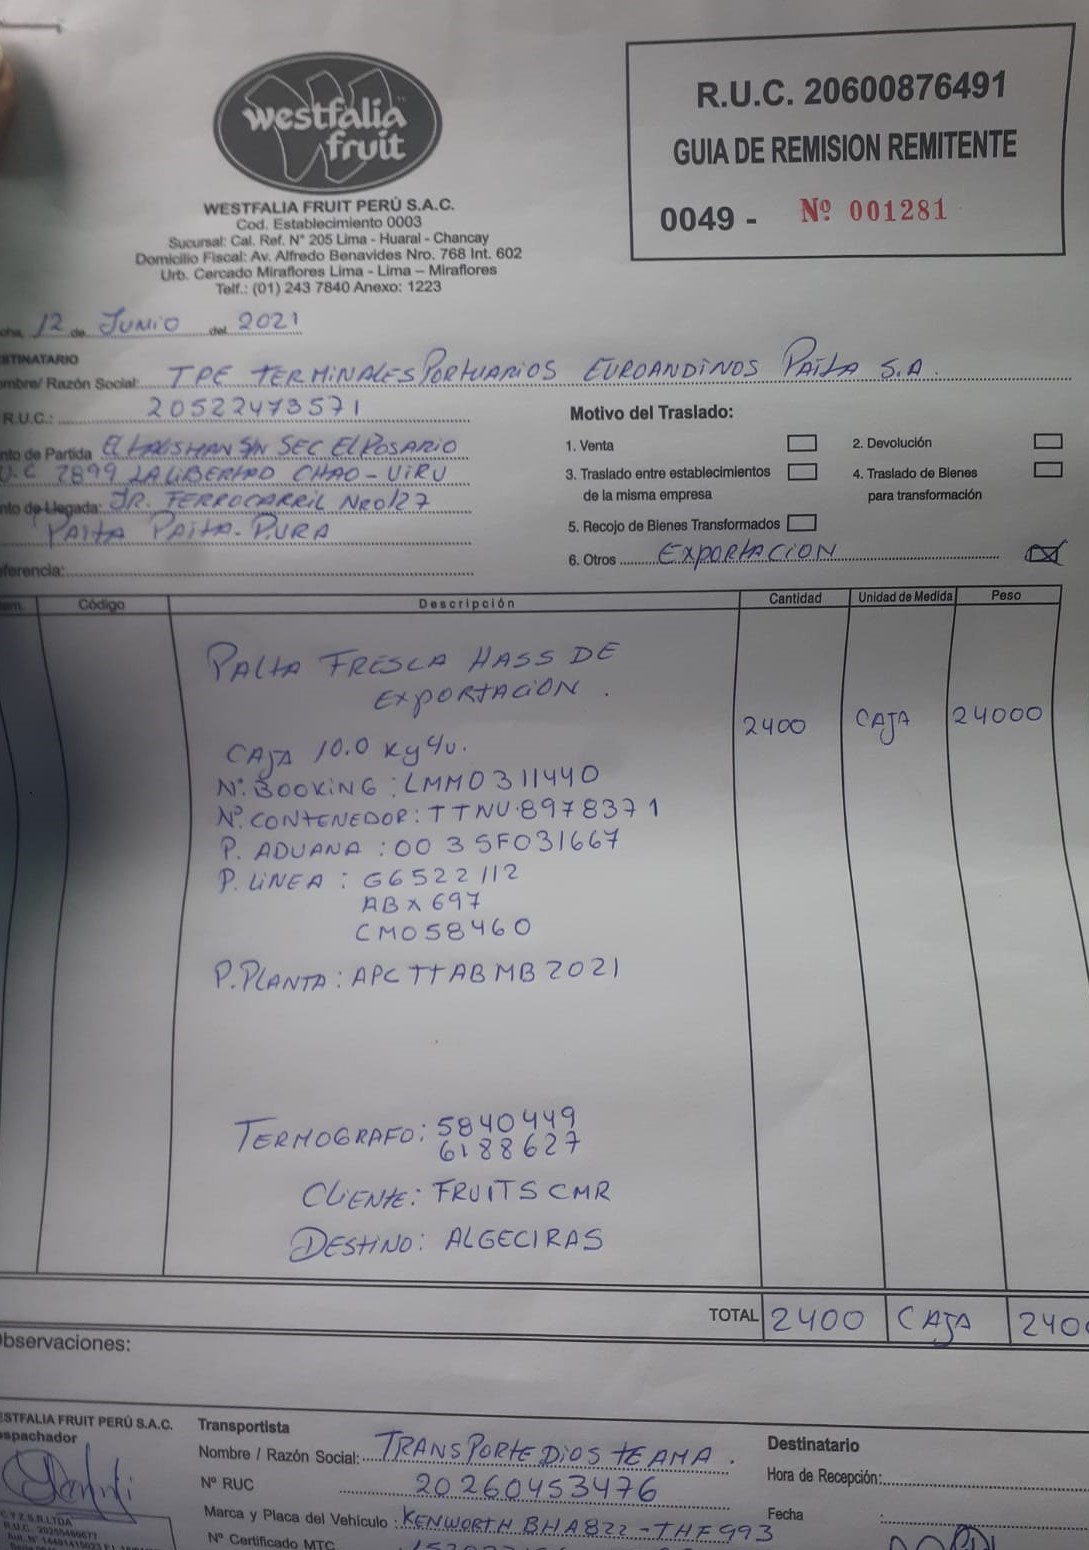 westfalia
fruit
WESTFALIA FRUIT PERÚ S.A.C.
Cod. Establecimiento 0003
Sucursal: Cal. Ref. N° 205 Lima - Huaral - Chancay
Domicilio Fiscal: Av. Alfredo Benavides Nro. 768 Int. 602
Urb. Cercado Miraflores Lima - Lima – Miraflores
Telf.: (01) 243 7840 Anexo: 1223
R.U.C. 20600876491
GUIA DE REMISION REMITENTE
0049 - Nº 001281
cha, 12 de JUNIO del 2021
STINATARIO
ombre/ Razón Social: TPE TERMINALES PORTUARIOS EUROANDINOS PAITA S.A.
R.U.C.: 20522473571
nto de Partida EL TALISMAN S/N SEC EL ROSARIO
U.C 2899 LA LIBERTAD CHAO - VIRU
nto de Llegada: JR. FERROCARRIL NRO127
PAITA PAITA - PIURA
eferencia:
Motivo del Traslado:
1. Venta
2. Devolución
3. Traslado entre establecimientos
de la misma empresa
4. Traslado de Bienes
para transformación
5. Recojo de Bienes Transformados
6. Otros EXPORTACION
em. Código Descripción Cantidad Unidad de Medida Peso
PALTA FRESCA HASS DE
EXPORTACION.
2400 CAJA 24000
CAJA 10.0 Kg c/u.
N°. BOOKING: LMM0311440
N°. CONTENEDOR: TTNU.8978371
P. ADUANA: 0035F031667
P. LINEA: G6522112
ABX697
CMO58460
P. PLANTA: APCTTABMB2021
TERMOGRAFO: 5840449
6188627
CLIENTE: FRUITS CMR
DESTINO: ALGECIRAS
TOTAL 2400 CAJA 240
Observaciones:
STFALIA FRUIT PERÚ S.A.C.
spachador
Transportista
Nombre / Razón Social: TRANSPORTE DIOS TE AMA.
Nº RUC 20260453476
Marca y Placa del Vehículo: KENWORTH BHA822-THF993
Nº Certificado MTC
Destinatario
Hora de Recepción:
Fecha